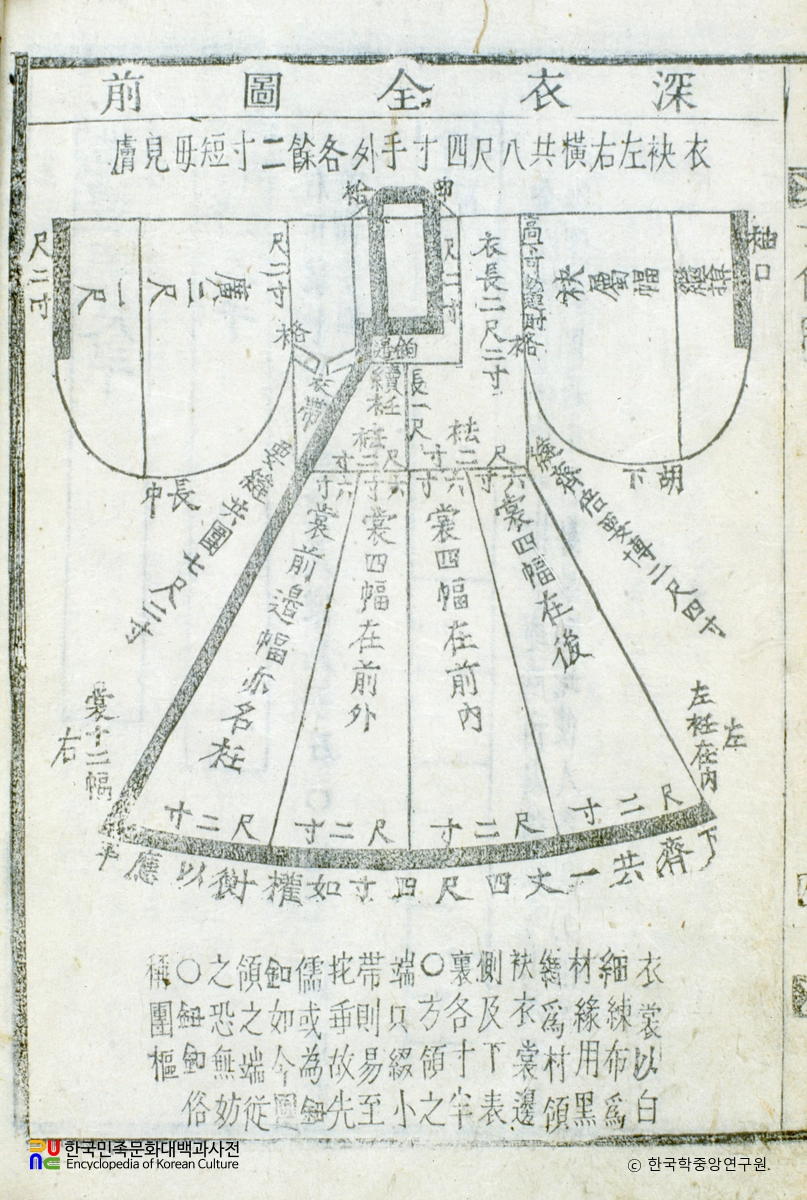 深衣全圖前
衣袂左右橫共八尺四寸手外各餘二寸短毋見膚
袷
曲
袖口
尺二寸
一尺
廣二尺
尺二寸
袼
尺二寸
衣長二尺二寸
袂屬幅
袼
衣帶
續衽
鉤邊
長一尺
尺二寸
尺二寸
六寸
六寸
六寸
六寸
胡下
長中
要縫共圍七尺二寸
縫齊倍要博二尺四寸
裳前邊幅亦名衽
裳四幅在前外
裳四幅在前內
裳四幅在後
裳十二幅
右
左
左衽在內
尺二寸
尺二寸
尺二寸
尺二寸
下齊共一丈四尺四寸如權衡以應平
衣裳以白
細練布爲
材緣用黑
繒爲材領
袂衣裳邊
側及下表
裏各寸半
〇方領之
端只綴小
帶則易至
拕垂故先
儒或為鈕
釦如今團
領之端從
之恐無妨
〇鈕釦俗
稱團樞
한국민족문화대백과사전
Encyclopedia of Korean Culture
ⓒ 한국학중앙연구원.